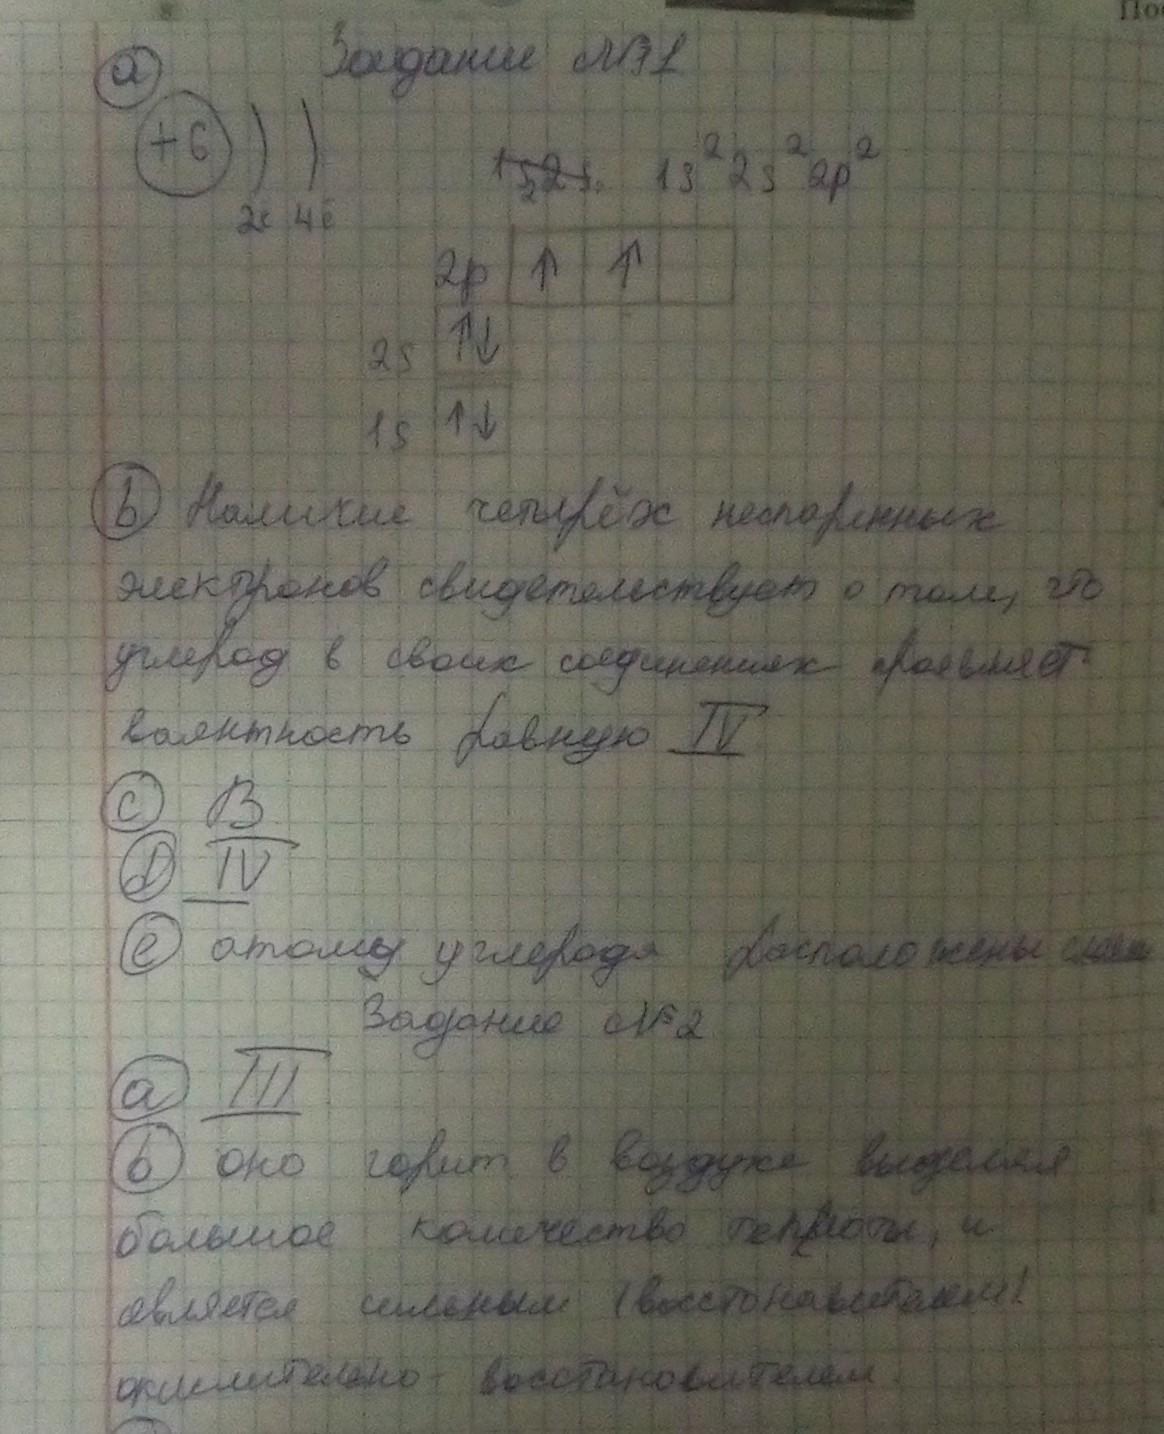 Пос
a Задание №1
+6 ) ) 1s22s. 1s² 2s² 2p²
2e 4e
2p ↑ ↑
2s ↑↓
1s ↑↓
b Наличие четырёх неспаренных
электронов свидетельствует о том, что
углерод в своих соединениях проявляет
валентность равную IV
c В
d IV
e атомы углерода расположены
Задание №2
a III
b оно горит в воздухе выделяя
большое количество теплоты, и
является сильным (восстонавителем)
окислительно- восстановителем.